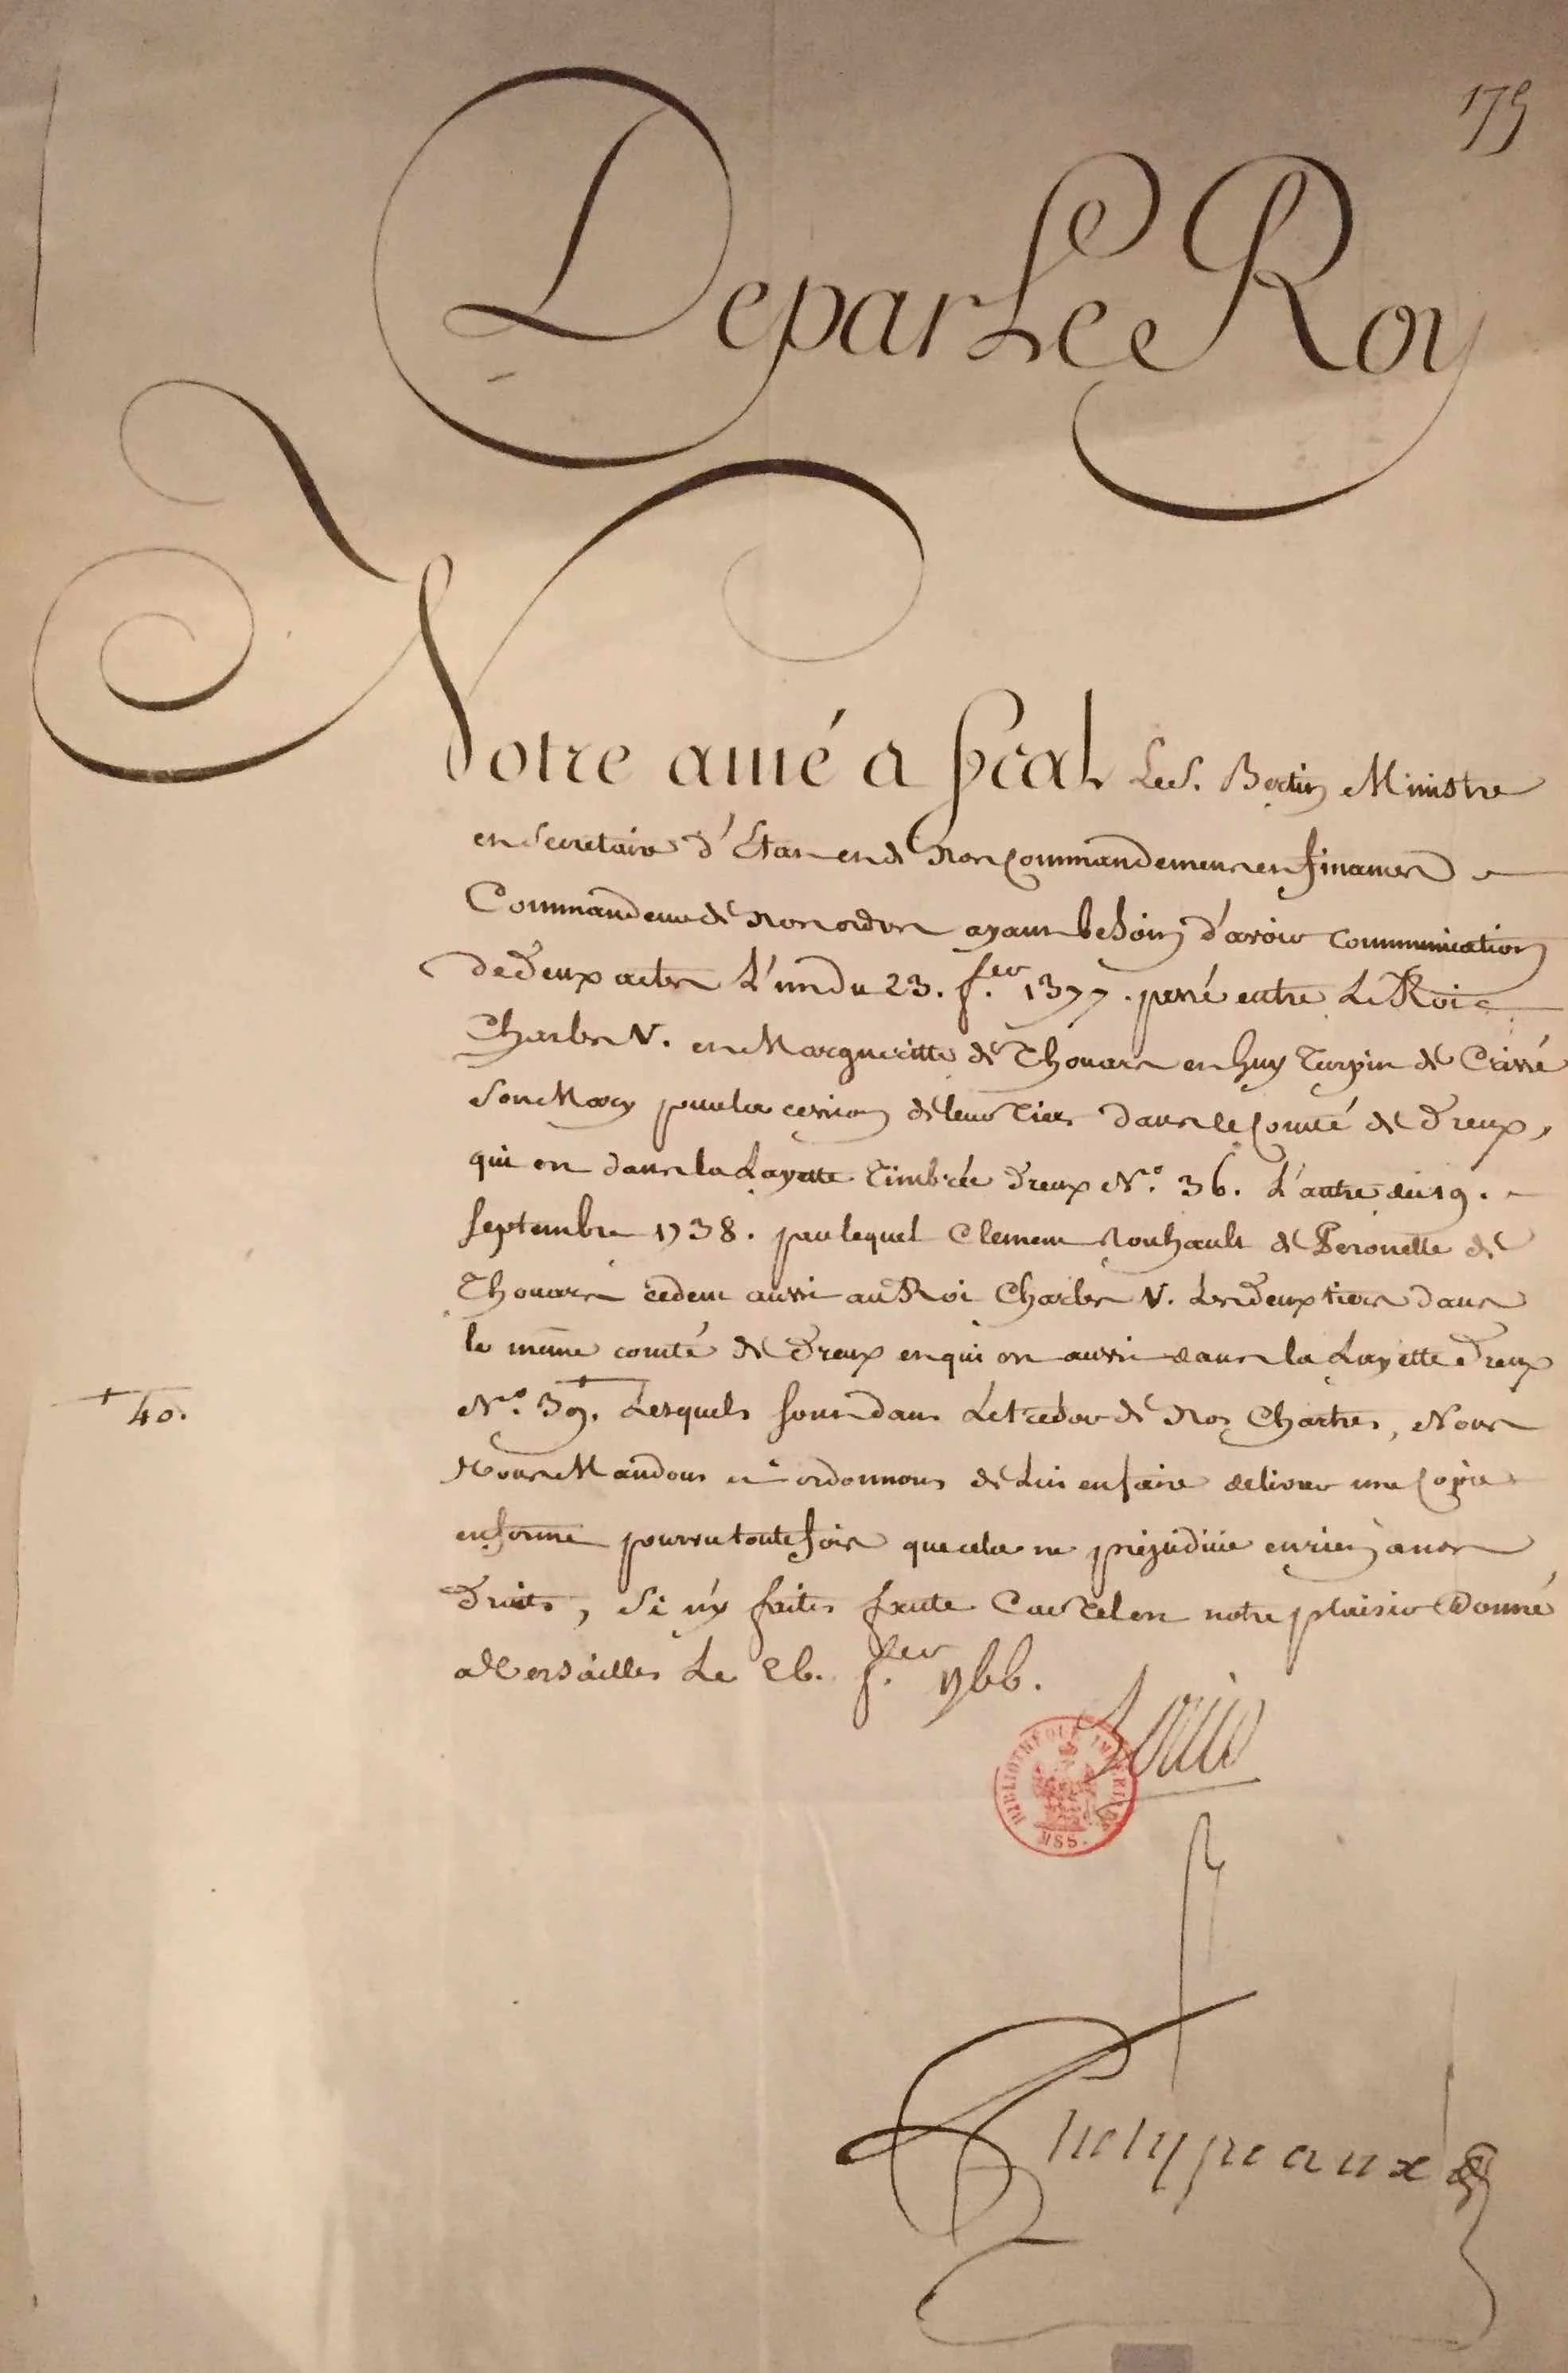 175
De par Le Roy
Notre amé & feal Le S. Bertin Ministre
et Secretaire d'Etat et de Nos Commandemens et finances
Commandeur de Nos ordres ayant besoin d'avoir communication
de Deux actes L'un du 23. f.er 1377. passé entre Le Roi
Charles V. et Marguerite de Thouars et Guy Turpin de Crissé
Son Mary pour la cession de leur Tiers dans le Comté de Dreux,
qui est dans la Layette Timbrée Dreux N.o 36. L'autre du 19.
Septembre 1738. par lequel Clement Rouhault & Peronelle de
Thouars cedent aussi au Roi Charles V. Les Deux tiers dans
le même comté de Dreux et qui est aussi dans la Layette Dreux
N.o 39. Lesquels sont dans Le tresor de Nos Chartres, Nous
+ 40.
Vous Mandons et ordonnons de Lui en faire delivrer une Copie
en forme pourvu toutefois que cela ne préjudicie en rien a nos
Droits, Si n'y faites faute Car Tel est notre plaisir Donné
a Versailles Le 26. f.er 1766.
Louis
BIBLIOTHEQUE IMPERIALE
MSS.
Phelypeaux